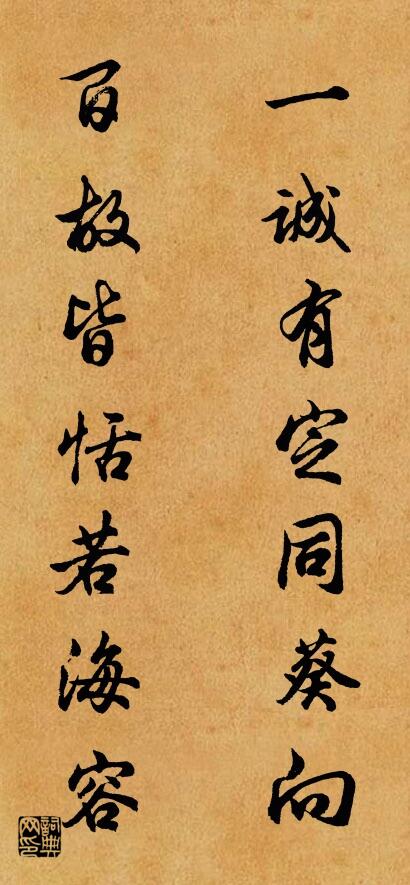 一诚有定同葵向
百故皆恬若海容
詞典网印